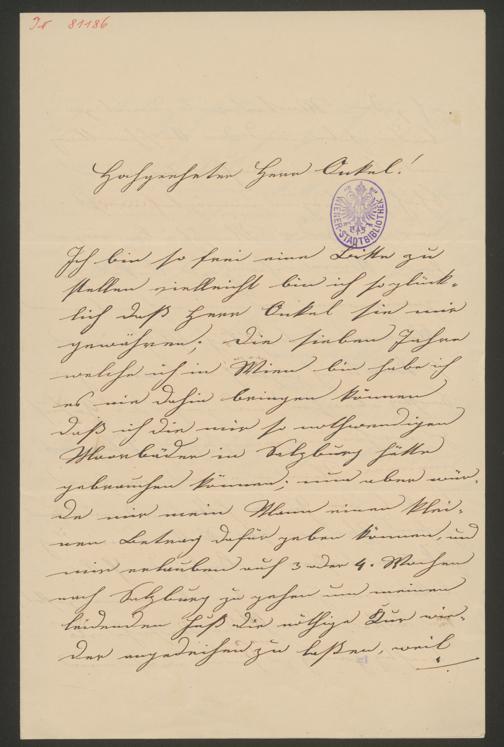 Jv 81186
Hochgeehrter Herr Onkel!
WIENER STADTBIBLIOTHEK
Ich bin so frei eine Bitte zu
stellen vielleicht bin ich so glück-
lich daß Herr Onkel sie mir
gewähren; Die sieben Jahre
welche ich in Wien bin habe ich
es nie dahin bringen können
daß ich die mir so nothwendigen
Moorbäder in Salzburg hätte
gebrauchen können; nun aber wür-
de mir mein Mann einen klei-
nen Betrag dafür geben können, und
mir erlauben auf 3 oder 4. Wochen
nach Salzburg zu gehen um meinen
leidenden Fuß die nöthige Kur wie-
der angedeihen zu laßen, weil